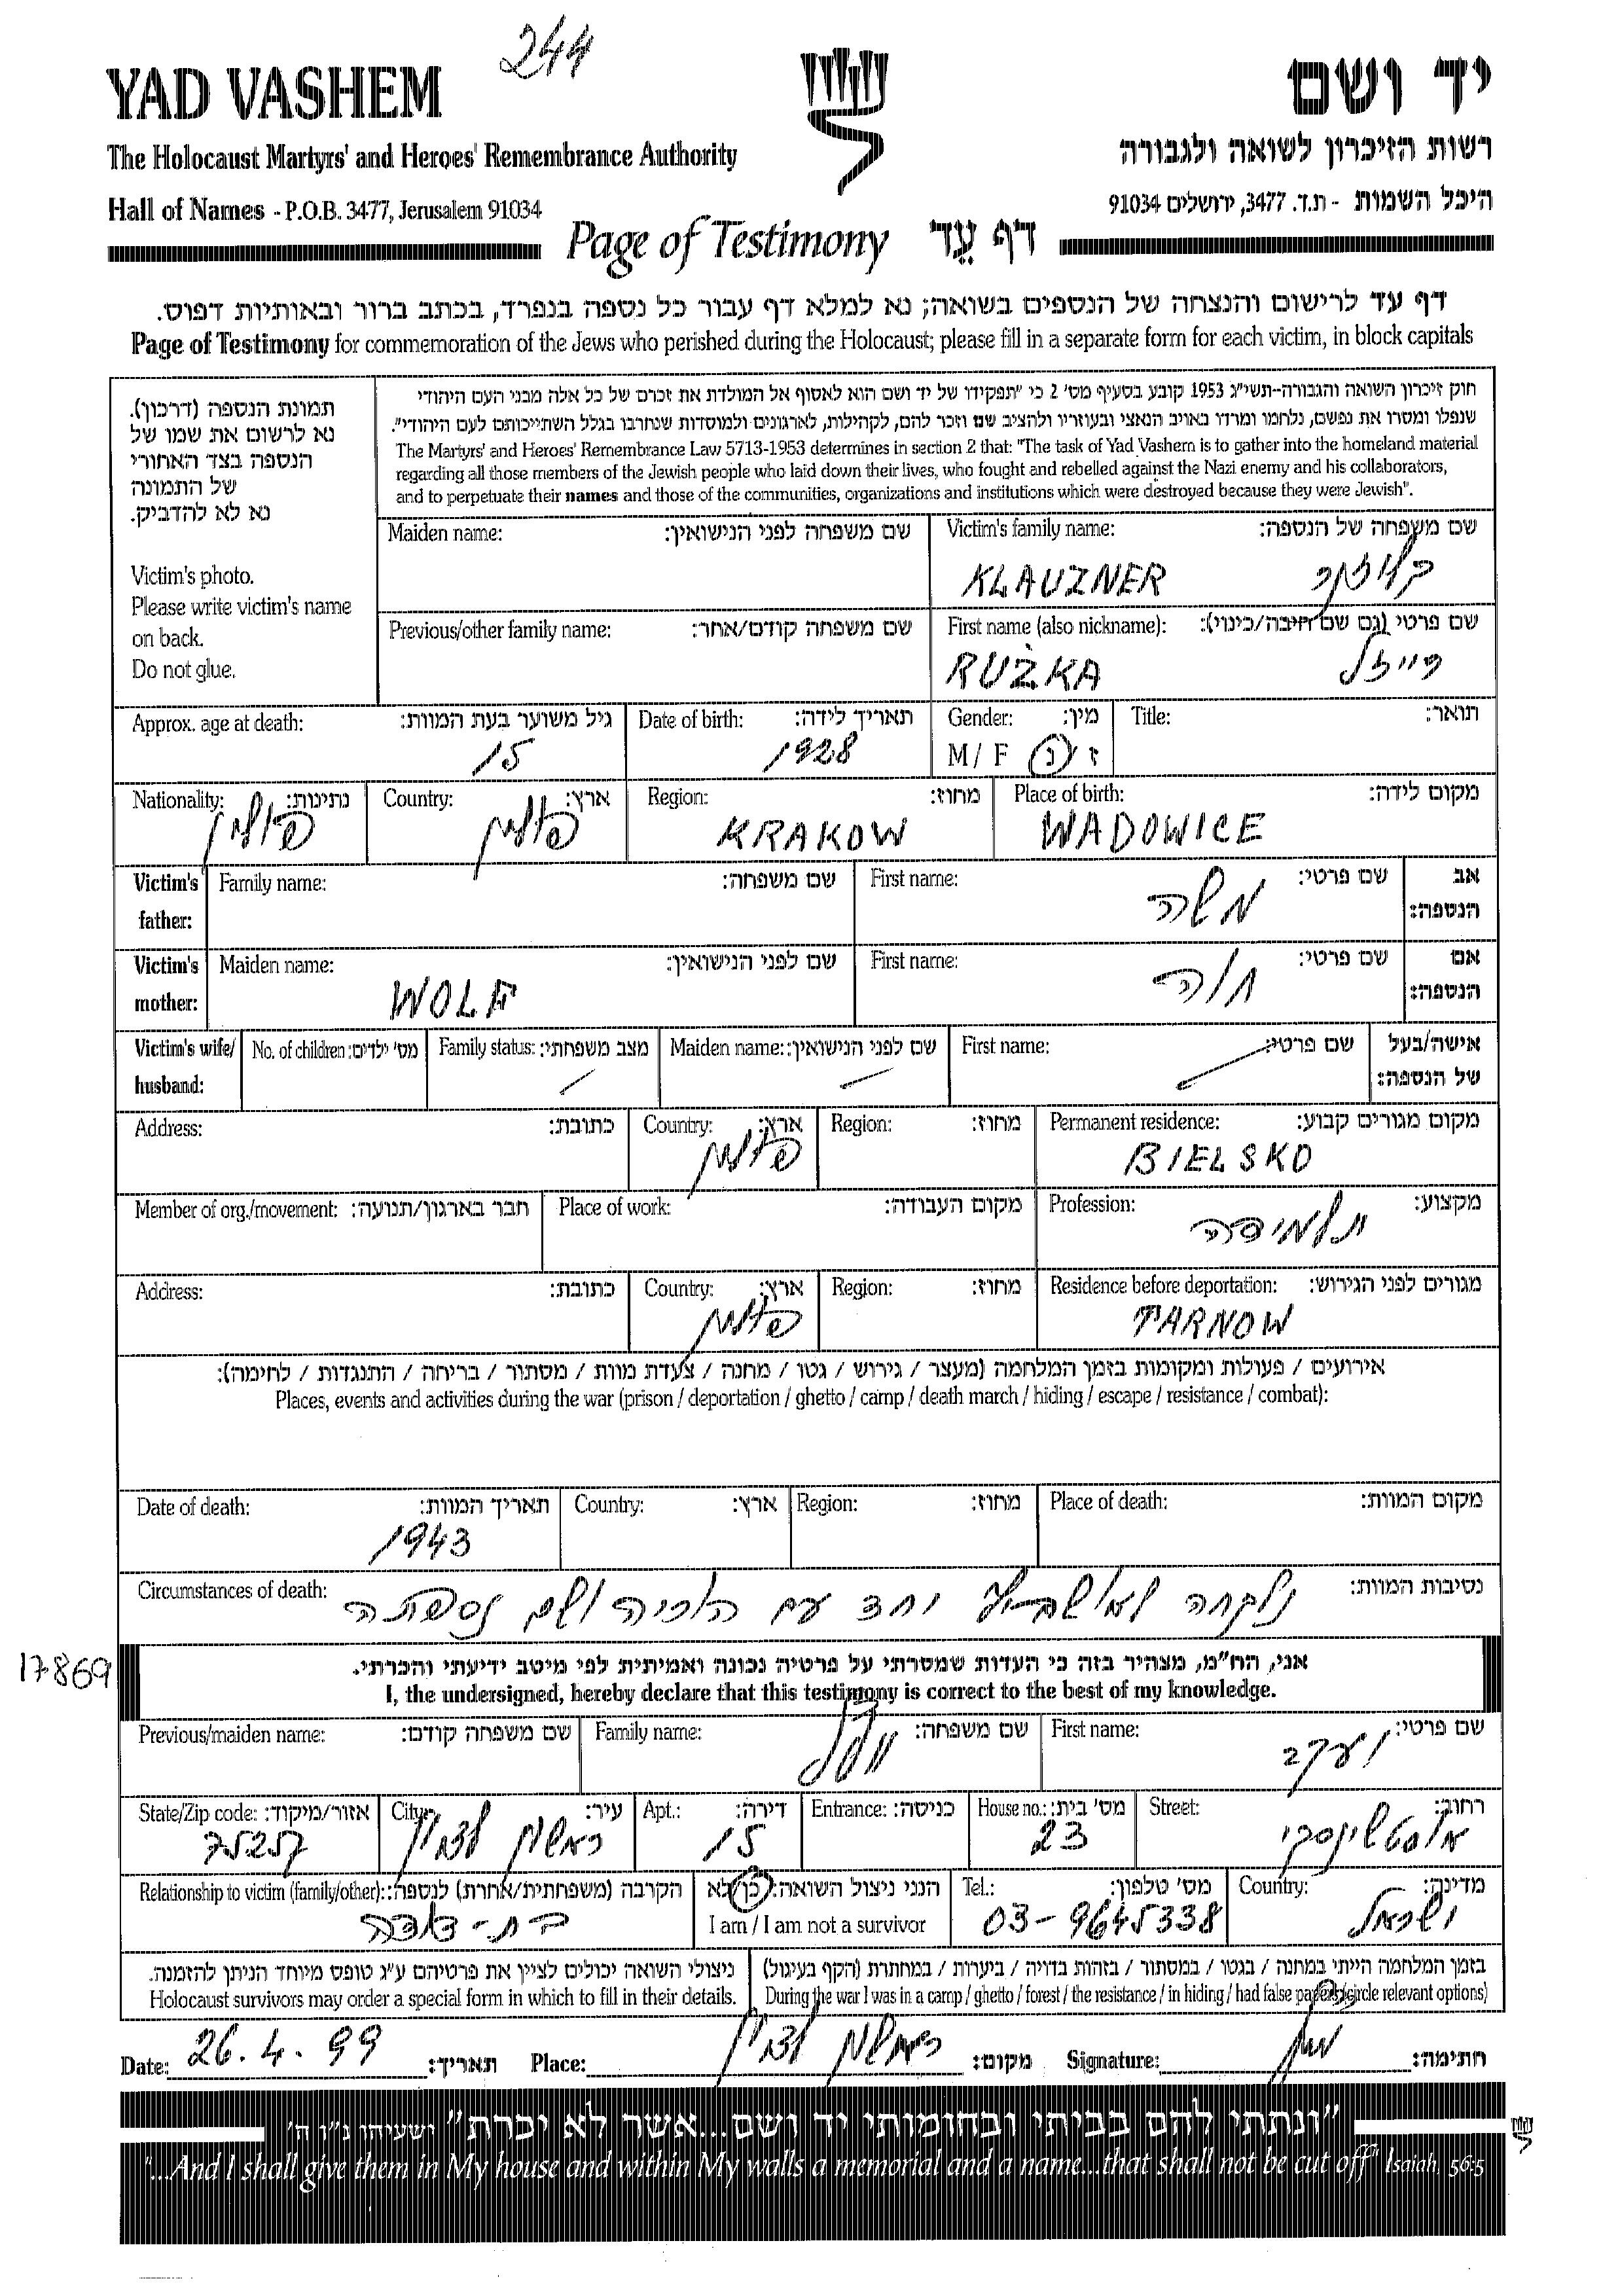 244
YAD VASHEM
יד ושם
The Holocaust Martyrs' and Heroes' Remembrance Authority
רשות הזיכרון לשואה ולגבורה
Hall of Names - P.O.B. 3477, Jerusalem 91034
היכל השמות - ת.ד. 3477, ירושלים 91034
Page of Testimony דף עֵד
דף עד לרישום והנצחה של הנספים בשואה; נא למלא דף עבור כל נספה בנפרד, בכתב ברור ובאותיות דפוס.
Page of Testimony for commemoration of the Jews who perished during the Holocaust; please fill in a separate form for each victim, in block capitals
תמונת הנספה (דרכון).
נא לרשום את שמו של
הנספה בצד האחורי
של התמונה
נא לא להדביק.
Victim's photo.
Please write victim's name
on back.
Do not glue.
חוק זיכרון השואה והגבורה-תשי"ג 1953 קובע בסעיף מס' 2 כי "תפקידו של יד ושם הוא לאסוף אל המולדת את זכרם של כל אלה מבני העם היהודי
שנפלו ומסרו את נפשם, נלחמו ומרדו באויב הנאצי ובעוזריו ולהציב שם וזכר להם, לקהילות, לארגונים ולמוסדות שנחרבו בגלל השתייכותם לעם היהודי".
The Martyrs' and Heroes' Remembrance Law 5713-1953 determines in section 2 that: "The task of Yad Vashem is to gather into the homeland material
regarding all those members of the Jewish people who laid down their lives, who fought and rebelled against the Nazi enemy and his collaborators,
and to perpetuate their names and those of the communities, organizations and institutions which were destroyed because they were Jewish".
Maiden name: שם משפחה לפני הנישואין:
Victim's family name: שם משפחה של הנספה:
KLAUZNER קלוזנר
Previous/other family name: שם משפחה קודם/אחר:
First name (also nickname): שם פרטי (גם שם חיבה/כינוי):
RUŻKA רייזל
Approx. age at death: גיל משוער בעת המוות:
15
Date of birth: תאריך לידה:
1928
Gender: מין:
M / F ז / נ
Title: תואר:
Nationality: נתינות:
פולין
Country: ארץ:
פולין
Region: מחוז:
KRAKOW
Place of birth: מקום לידה:
WADOWICE
Victim's father: Family name: שם משפחה:
First name: שם פרטי: אב הנספה:
משה
Victim's mother: Maiden name: שם לפני הנישואין:
WOLF
First name: שם פרטי: אם הנספה:
חוה
Victim's wife/ husband: No. of children: מס' ילדים: Family status: מצב משפחתי: Maiden name: שם לפני הנישואין: First name: שם פרטי: אישה/בעל של הנספה:
Address: כתובת:
Country: ארץ:
פולין
Region: מחוז:
Permanent residence: מקום מגורים קבוע:
BIELSKO
Member of org./movement: חבר בארגון/תנועה:
Place of work: מקום העבודה:
Profession: מקצוע:
תלמידה
Address: כתובת:
Country: ארץ:
פולין
Region: מחוז:
Residence before deportation: מגורים לפני הגירוש:
TARNOW
אירועים / פעולות ומקומות בזמן המלחמה (מעצר / גירוש / גטו / מחנה / צעדת מוות / מסתור / בריחה / התנגדות / לחימה):
Places, events and activities during the war (prison / deportation / ghetto / camp / death march / hiding / escape / resistance / combat):
Date of death: תאריך המוות:
1943
Country: ארץ:
Region: מחוז:
Place of death: מקום המוות:
Circumstances of death: נסיבות המוות:
נלקחה לאושביץ יחד עם הוריה ושם נספתה
17869
אני, הח"מ, מצהיר בזה כי העדות שמסרתי על פרטיה נכונה ואמיתית לפי מיטב ידיעתי והכרתי.
I, the undersigned, hereby declare that this testimony is correct to the best of my knowledge.
Previous/maiden name: שם משפחה קודם:
Family name: שם משפחה:
First name: שם פרטי:
יעקב
State/Zip code: אזור/מיקוד:
75257
City: עיר:
ראשון לציון
Apt.: דירה:
15
Entrance: כניסה:
House no.: מס' בית:
23
Street: רחוב:
Relationship to victim (family/other): הקרבה (משפחתית/אחרת) לנספה:
בת-דודה
הנני ניצול השואה: כן/לא
I am / I am not a survivor
Tel.: מס' טלפון:
03-9645338
Country: מדינה:
ישראל
ניצולי השואה יכולים לציין את פרטיהם ע"ג טופס מיוחד הניתן להזמנה.
Holocaust survivors may order a special form in which to fill in their details.
בזמן המלחמה הייתי במחנה / בגטו / במסתור / בזהות בדויה / ביערות / במחתרת (הקף בעיגול)
During the war I was in a camp / ghetto / forest / the resistance / in hiding / had false papers (circle relevant options)
Date: 26.4.99 תאריך: Place: ראשון לציון מקום: Signature: חתימה:
"ונתתי להם בביתי ובחומותי יד ושם...אשר לא יכרת" ישעיהו נ"ו ה'
"...And I shall give them in My house and within My walls a memorial and a name...that shall not be cut off" Isaiah, 56:5